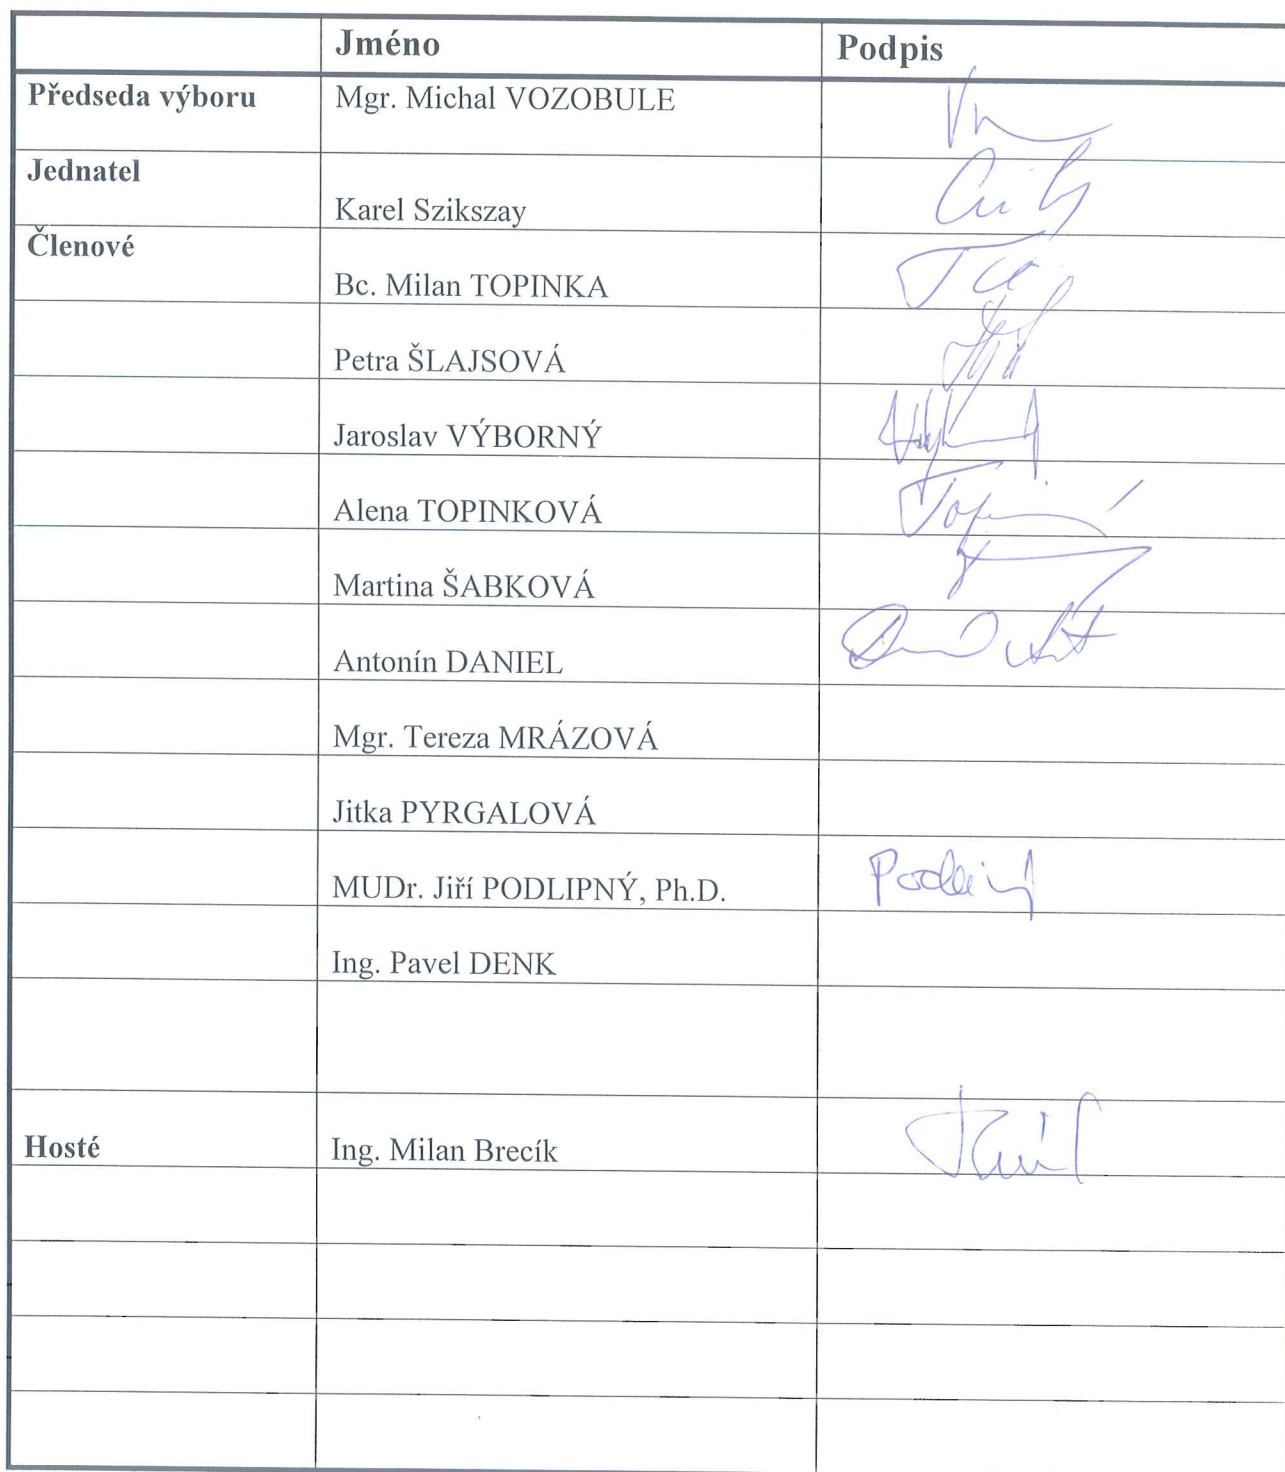 Jméno Podpis
Předseda výboru Mgr. Michal VOZOBULE
Jednatel
Karel Szikszay
Členové
Bc. Milan TOPINKA
Petra ŠLAJSOVÁ
Jaroslav VÝBORNÝ
Alena TOPINKOVÁ
Martina ŠABKOVÁ
Antonín DANIEL
Mgr. Tereza MRÁZOVÁ
Jitka PYRGALOVÁ
MUDr. Jiří PODLIPNÝ, Ph.D.
Ing. Pavel DENK
Hosté Ing. Milan Brecík